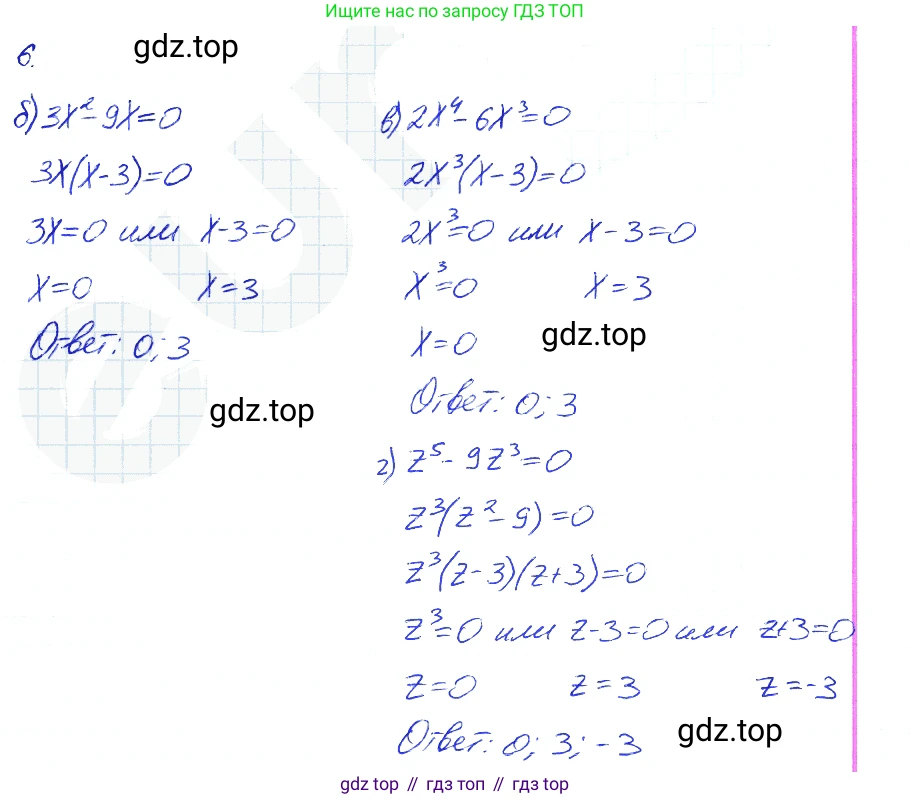 Ищите нас по запросу ГДЗ ТОП
6.
gdz.top
б) 3x² - 9x = 0
3x(x - 3) = 0
3x = 0 или x - 3 = 0
x = 0 x = 3
Ответ: 0; 3
gdz.top
в) 2x⁴ - 6x³ = 0
2x³(x - 3) = 0
2x³ = 0 или x - 3 = 0
x³ = 0 x = 3
x = 0
gdz.top
Ответ: 0; 3
г) z⁵ - 9z³ = 0
z³(z² - 9) = 0
z³(z - 3)(z + 3) = 0
z³ = 0 или z - 3 = 0 или z + 3 = 0
z = 0 z = 3 z = -3
Ответ: 0; 3; -3
gdz.top
gdz top // гдз топ // gdz top